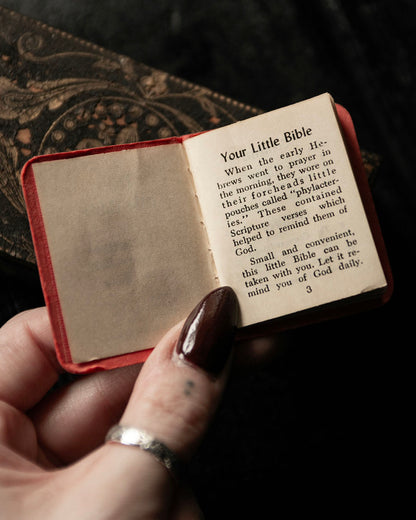 Your Little Bible
When the early He-
brews went to prayer in
the morning, they wore on
their foreheads little
pouches called "phylacter-
ies." These contained
Scripture verses which
helped to remind them of
God.
Small and convenient,
this little Bible can be
taken with you. Let it re-
mind you of God daily.
3